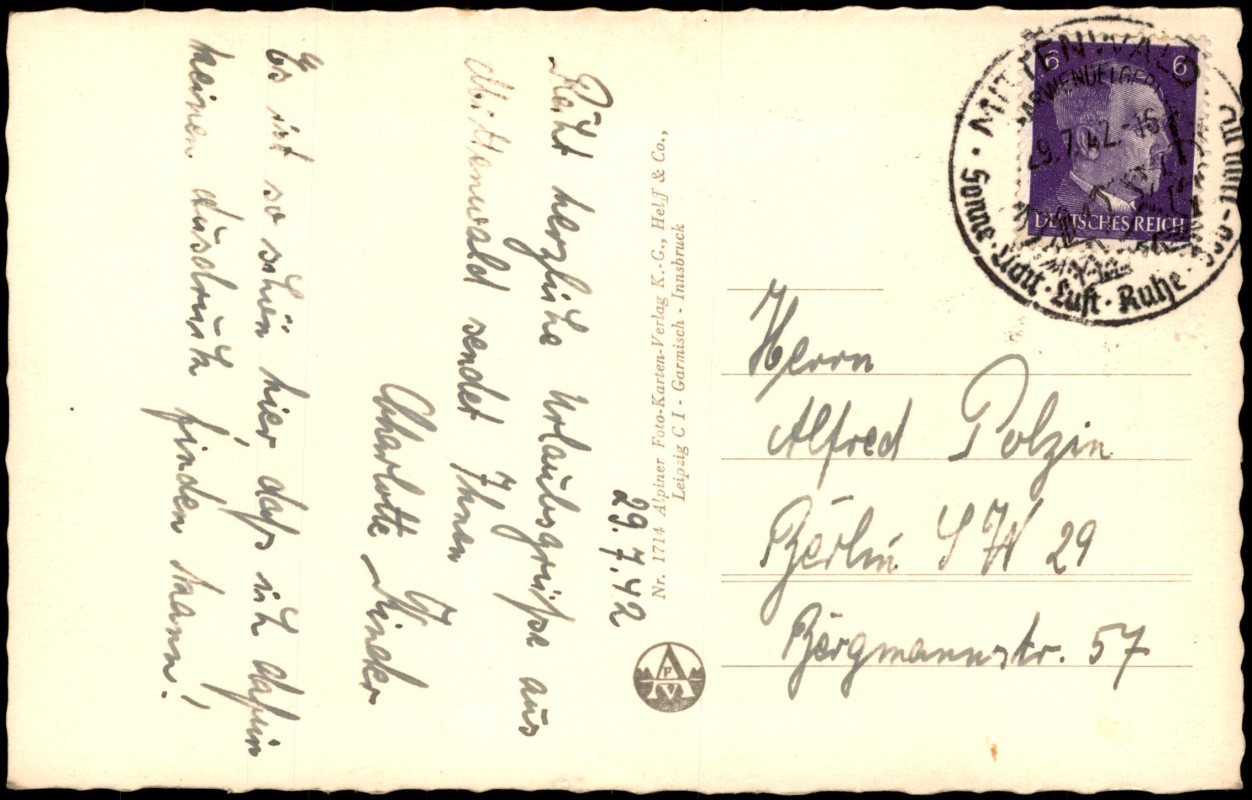 29.7.42
Recht herzliche Urlaubsgrüße aus
Mittenwald sendet Ihnen
Charlotte Kinder
Es ist so schön hier, dass ich dafür
keinen Ausdruck finden kann!
Nr. 1714 Alpiner Foto-Karten-Verlag K.-G., Helff & Co.,
Leipzig C I - Garmisch - Innsbruck
A
F
V
MITTENWALD
KARWENDELGEB
29.7.42.-16
Sonne · Licht · Luft · Ruhe
6 6
DEUTSCHES REICH
Herrn
Alfred Polzin
Berlin SW 29
Bergmannstr. 57